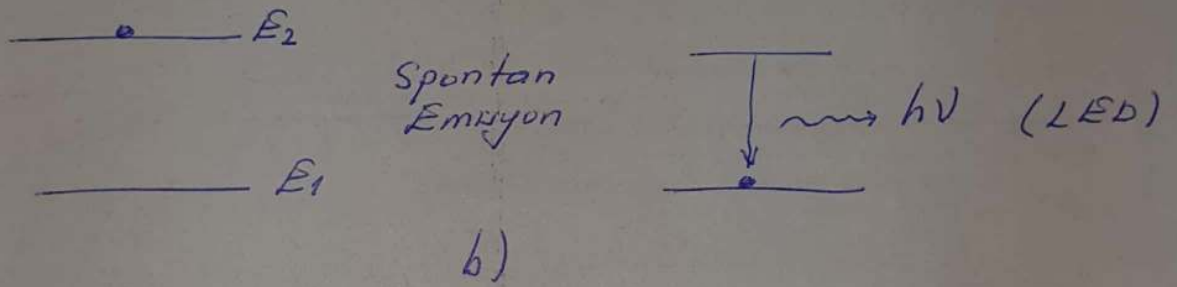 E2
Spontan
Emisyon
hν (LED)
E1
b)